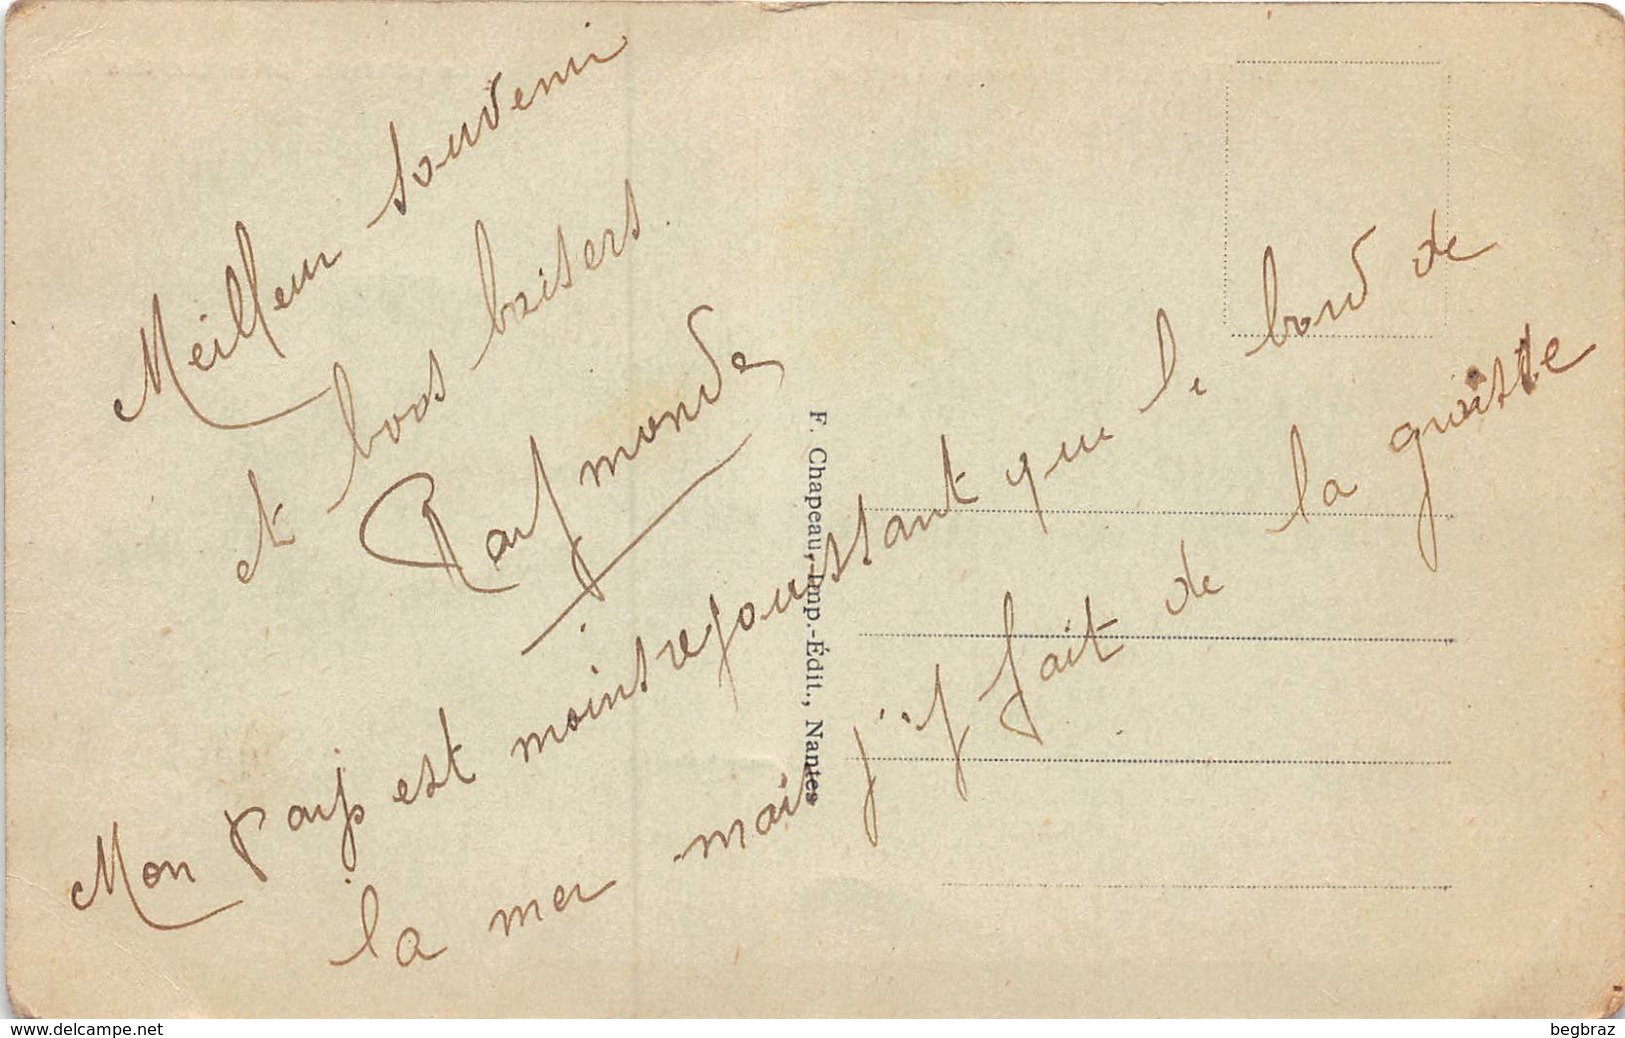 Meilleur souvenir
et bons baisers.
Raymonde
Mon pays est moins rejouissant que le bord de
la mer mais j'y fait de la graisse
F. Chapeau, Imp.-Édit., Nantes
www.delcampe.net
begbraz